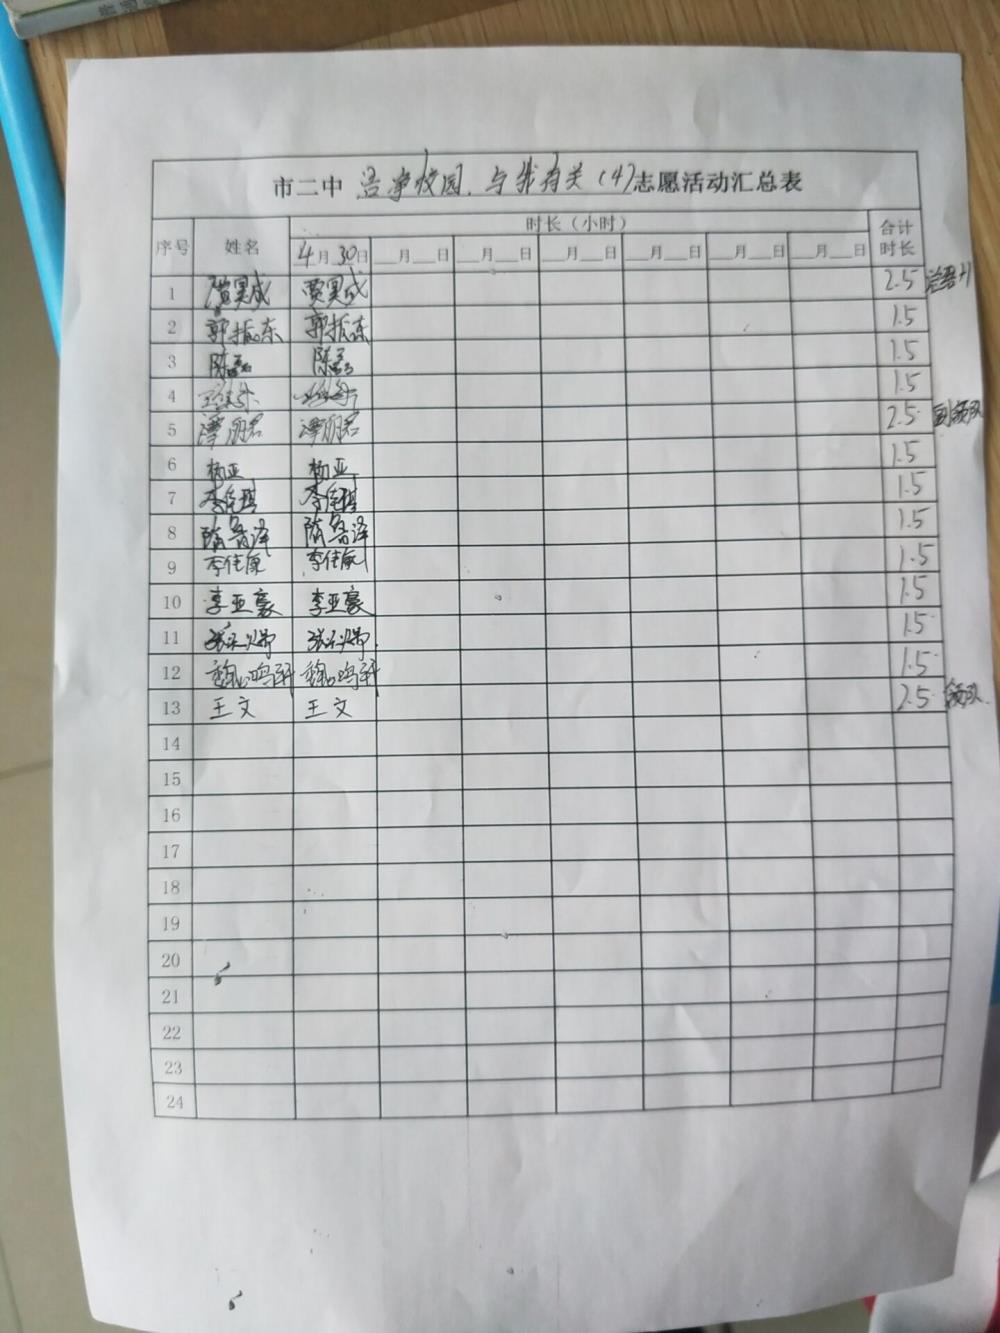 市二中 洁净校园、与我有关（4）志愿活动汇总表
序号 姓名 时长（小时） 合计时长
4月30日 __月__日 __月__日 __月__日 __月__日 __月__日 __月__日
1 贾昊成 贾昊成 2.5
2 郭振东 郭振东 1.5
3 陈磊 陈磊 1.5
4 1.5
5 谭朋君 谭朋君 2.5 副领队
6 杨亚 杨亚 1.5
7 李佳琪 李佳琪 1.5
8 隋鲁泽 隋鲁泽 1.5
9 李佳康 李佳康 1.5
10 李亚豪 李亚豪 1.5
11 1.5
12 魏鸣轩 魏鸣轩 1.5
13 王文 王文 2.5 领队
14
15
16
17
18
19
20
21
22
23
24